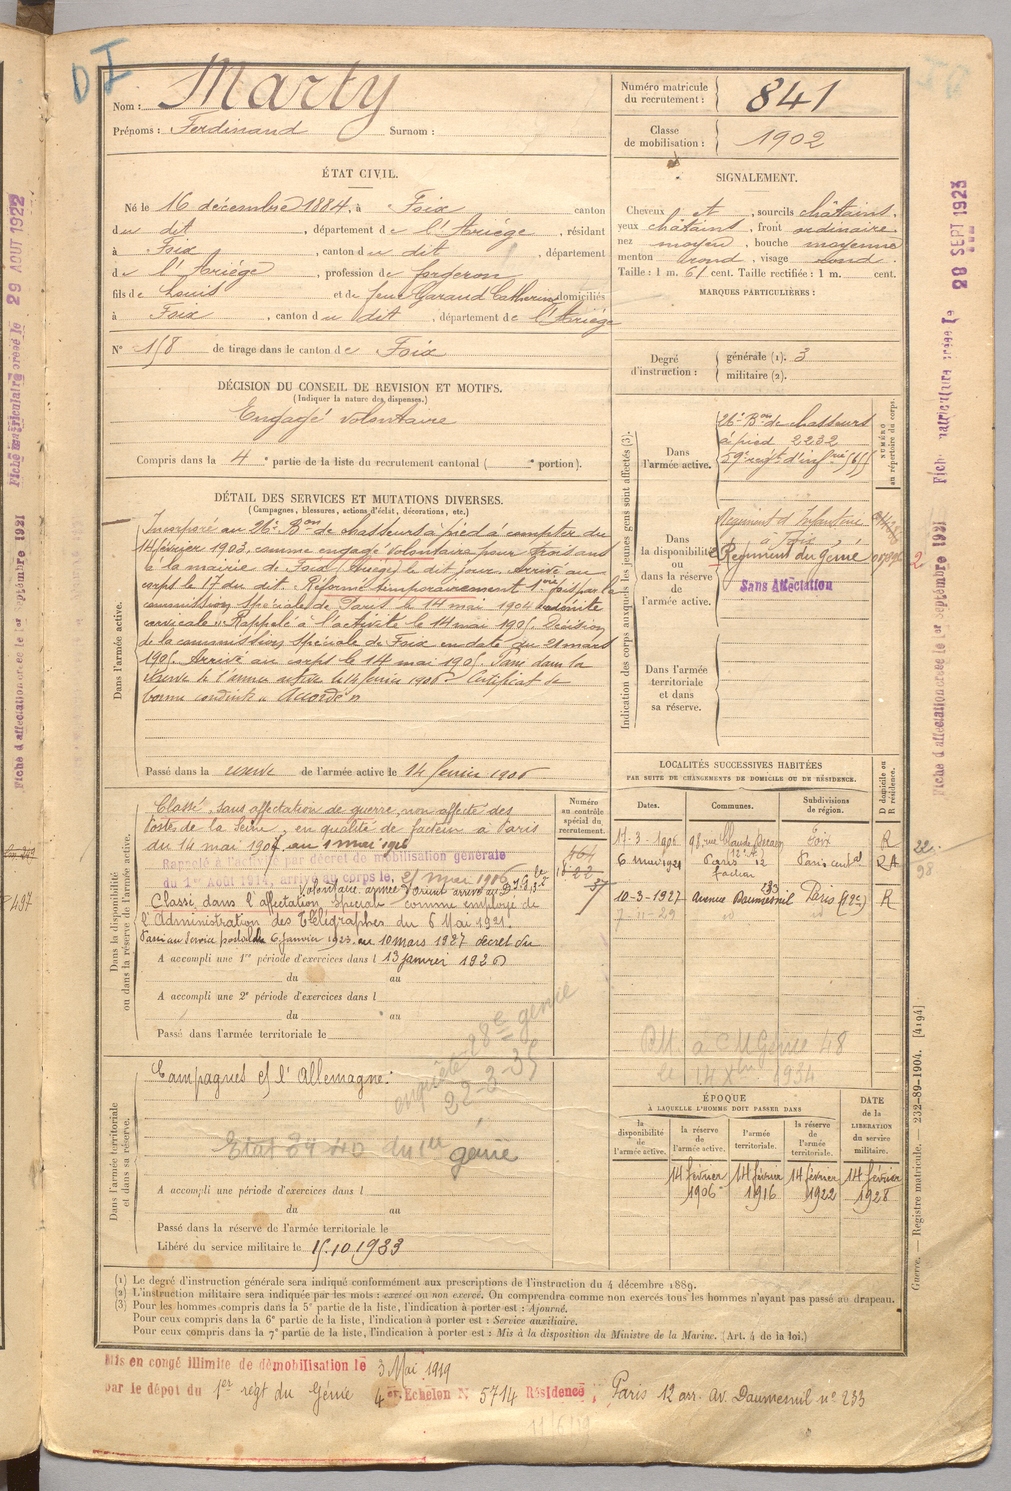 DI
Nom : Marty
Prénoms : Ferdinand Surnom :
Numéro matricule du recrutement : 841
Classe de mobilisation : 1902
ÉTAT CIVIL.
Né le 16 décembre 1884, à Foix canton
du dit, département de l'Ariège, résidant
à Foix, canton du dit, département
de l'Ariège, profession de forgeron
fils de Louis et de feue Garaud Catherine domiciliés
à Foix, canton du dit, département de l'Ariège
N° 158 de tirage dans le canton de Foix
SIGNALEMENT.
Cheveux et, sourcils châtains.
yeux châtains, front ordinaire
nez moyen, bouche moyenne
menton rond, visage rond.
Taille : 1 m. 61 cent. Taille rectifiée : 1 m. cent.
MARQUES PARTICULIÈRES :
Degré d'instruction :
générale (1). 3
militaire (2).
DÉCISION DU CONSEIL DE REVISION ET MOTIFS.
(Indiquer la nature des dispenses.)
Engagé volontaire
Compris dans la 4e partie de la liste du recrutement cantonal ( e portion).
DÉTAIL DES SERVICES ET MUTATIONS DIVERSES.
(Campagnes, blessures, actions d'éclat, décorations, etc.)
Dans l'armée active.
Incorporé au 26e Bon de chasseurs à pied à compter du
14 février 1903, comme engagé volontaire pour trois ans
à la mairie de Foix (Ariège) le dit jour. Arrivé au
corps le 17 du dit. Réformé temporairement 1ère fois par la
commission spéciale de Paris le 14 mai 1904 "adénite
cervicale" Rappelé à l'activité le 14 mai 1905. Décision
de la commission spéciale de Foix en date du 21 mars
1905. Arrivé au corps le 14 mai 1905. Passé dans la
réserve de l'armée active le 14 février 1906. Certificat de
bonne conduite "Accordé"
Passé dans la réserve de l'armée active le 14 février 1906
Indication des corps auxquels les jeunes gens sont affectés (3).
NUMÉRO au répertoire du corps.
Dans l'armée active.
26e Bon de chasseurs
à pied 2232
59e regt d'infrie
Dans la disponibilité ou dans la réserve de l'armée active.
Régiment d'Infanterie
à Foix
Régiment du Génie
Sans Affectation
Dans l'armée territoriale et dans sa réserve.
Dans la disponibilité ou dans la réserve de l'armée active.
Classé sans affectation de guerre, non affecté des
Postes de la Seine, en qualité de facteur à Paris
du 14 mai 1907 au 1 mai 1916
Rappelé à l'activité par décret de mobilisation générale
du 1er Août 1914, arrivé au corps le,
Classé dans l'affectation spéciale comme employé de
l'Administration des Télégraphes du 6 Mai 1921.
Passé au Service postal du 6 janvier 1923. au 10 mars 1927 décret du
13 janvier 1926
A accompli une 1re période d'exercices dans l
du au
A accompli une 2e période d'exercices dans l
du au
Passé dans l'armée territoriale le
Numéro au contrôle spécial du recrutement.
464
enquête 28e génie
22-3-35
LOCALITÉS SUCCESSIVES HABITÉES
PAR SUITE DE CHANGEMENTS DE DOMICILE OU DE RÉSIDENCE.
Dates. Communes. Subdivisions de région. D domicile ou R résidence.
17-3-1906 98, rue Claude Decaen Foix R
6 mai 1921 Paris 12 Paris central RA
10-3-1927 avenue Daumesnil 233 Paris (12e) R
7-11-29
22.
98
BM. à CM Génie 48
le 14 Xbre 1934
Dans l'armée territoriale et dans sa réserve.
Campagnes cf l'Allemagne.
Etat 39 40 du 1er génie
A accompli une période d'exercices dans l
du au
Passé dans la réserve de l'armée territoriale le
Libéré du service militaire le 15.10.1933
ÉPOQUE
À LAQUELLE L'HOMME DOIT PASSER DANS
la disponibilité de l'armée active.
la réserve de l'armée active.
l'armée territoriale.
la réserve de l'armée territoriale.
DATE de la LIBÉRATION du service militaire.
14 février 1906
14 février 1916
14 février 1922
14 février 1928
(1) Le degré d'instruction générale sera indiqué conformément aux prescriptions de l'instruction du 4 décembre 1889.
(2) L'instruction militaire sera indiquée par les mots : exercé ou non exercé. On comprendra comme non exercés tous les hommes n'ayant pas passé au drapeau.
(3) Pour les hommes compris dans la 5e partie de la liste, l'indication à porter est : Ajourné.
Pour ceux compris dans la 6e partie de la liste, l'indication à porter est : Service auxiliaire.
Pour ceux compris dans la 7e partie de la liste, l'indication à porter est : Mis à la disposition du Ministre de la Marine. (Art. 4 de la loi.)
Mis en congé illimité de démobilisation le 3 Mai 1919
par le dépôt du 1er régt du Génie 4e Echelon N° 5714 Résidence : Paris 12 arr. Av. Daumesnil n° 233
Guerre. — Registre matricule. — 232-89-1904. [4194]
Fiche matriculaire créée le 29 AOUT 1922
Fiche d'affectation créée le 1er Septembre 1921
Fiche matriculaire créée le 28 SEPT 1923
Fiche d'affectation créée le 1er Septembre 1921